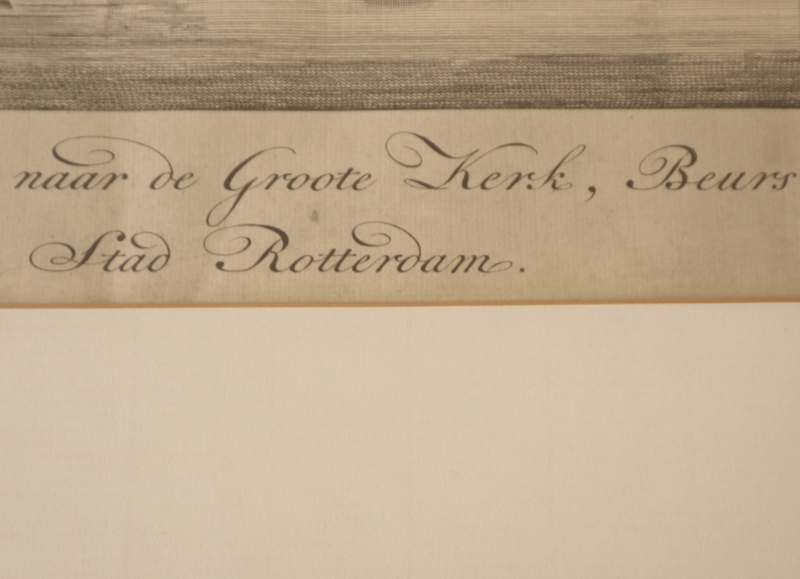 naar de Groote Kerk, Beurs
Stad Rotterdam.